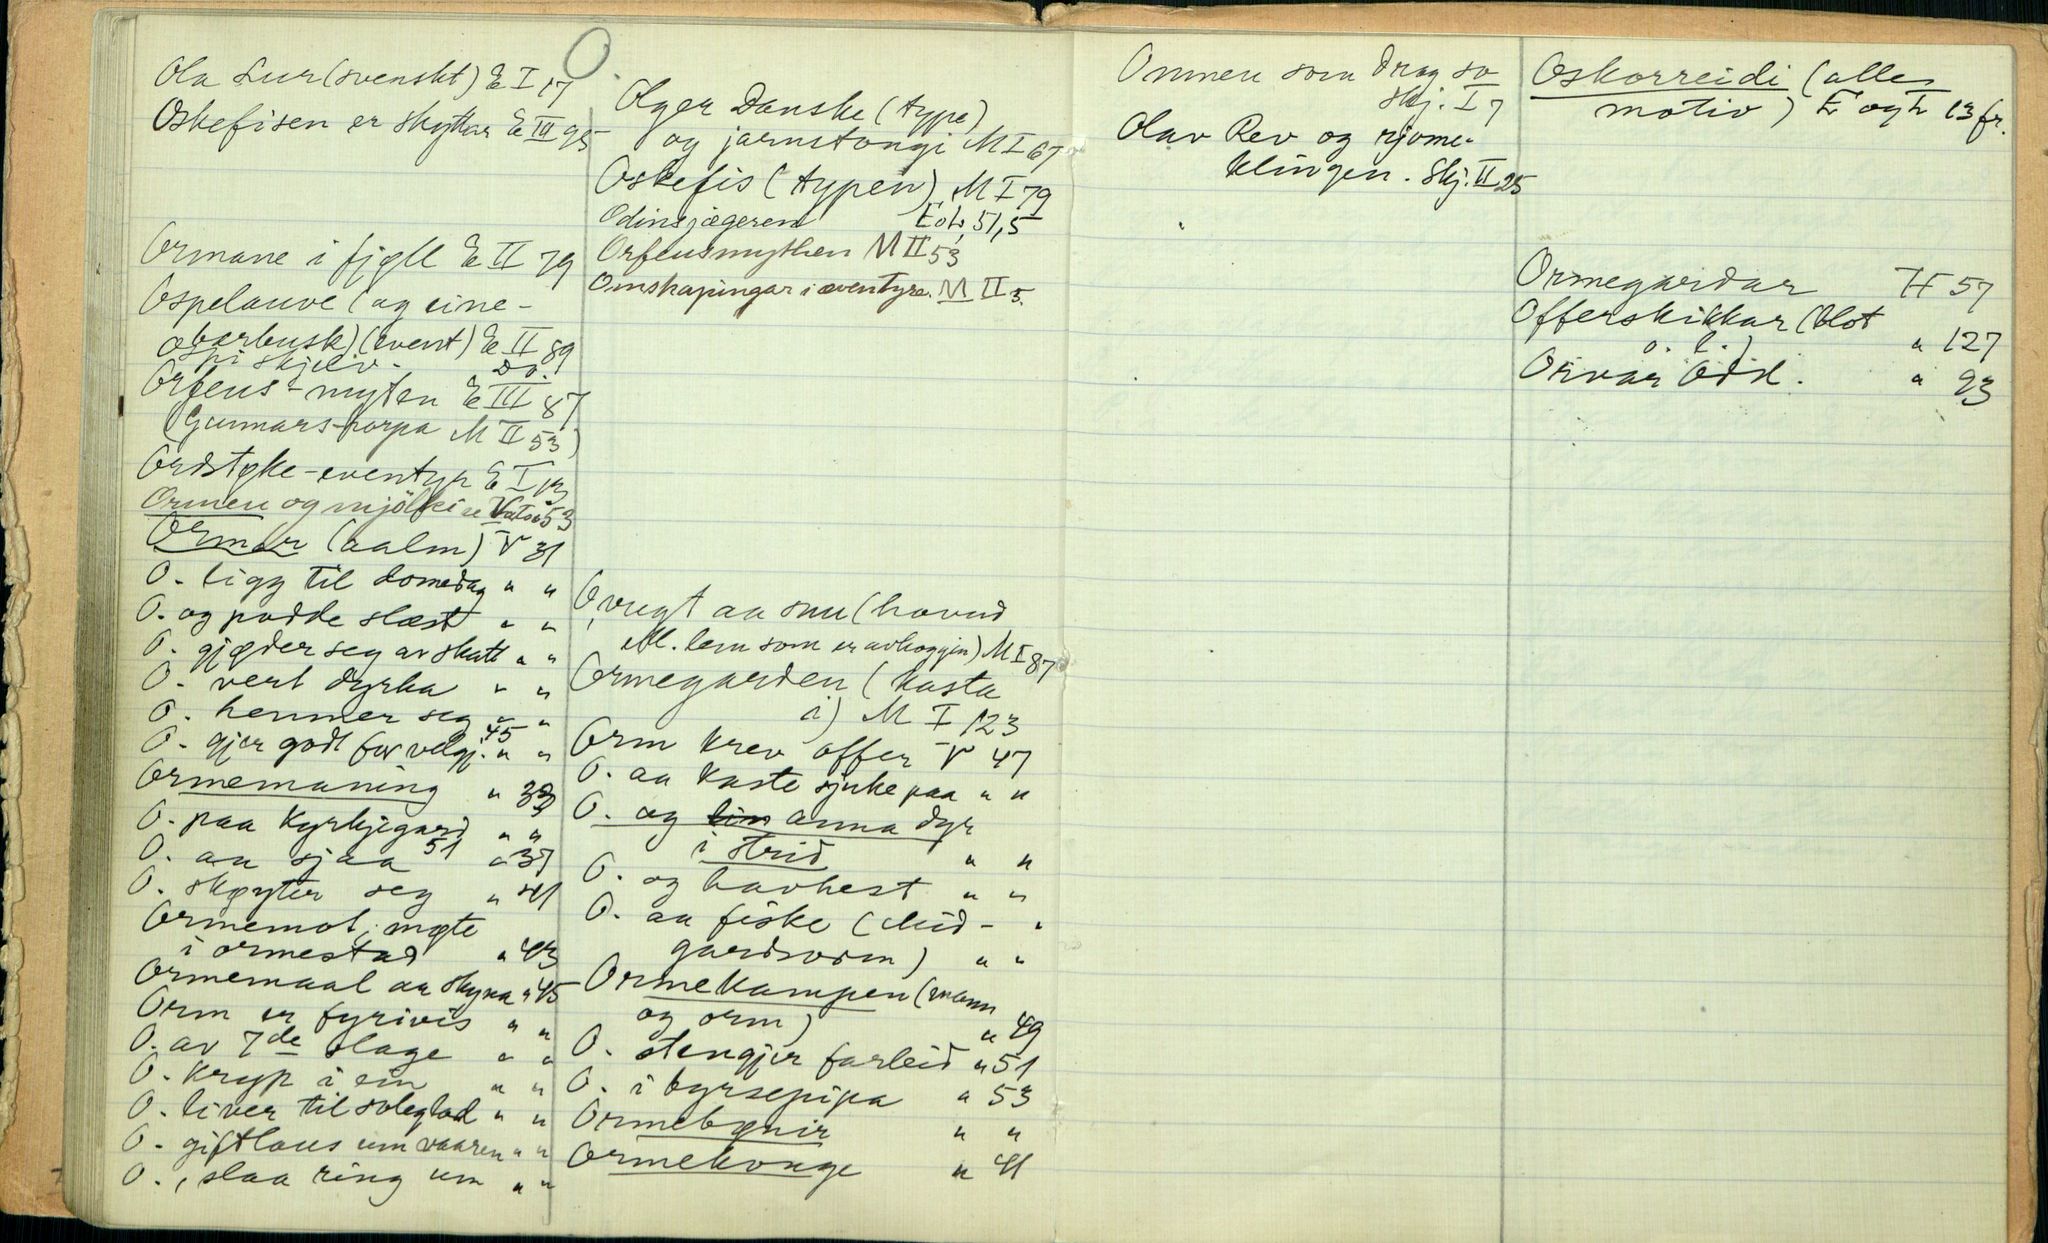 O.
Ola Lur (svenskt) E I 17
Oskefisen er skyttar E III 95
Ormane i fjøll E II 79
Ospelauve (og eine-
barbusk) (event) E II 89
Ospi skjelv. Do.
Orfeus-myten E III 87
(Gunnars-harpa M II 53)
Ordstøke-eventyr E I 13
Ormen og mjölki
Ormar (aalm) V 31
O. ligg til domedag " "
O. og padde slæst " "
O. gjøder seg av skatt " "
O. vert dyrka " "
O. hemner seg " "
O. gjer godt for velgj. 45 " "
Ormemaning " 33
O. paa kyrkjegard " "
O. aa sjaa 51 " 37
O. skøyter seg " 41
Ormemot, møte
i ormestad " 43
Ormemaal aa skyna " 45
Orm er fyrivis " "
O. av 7de slage " "
O. kryp i ein " "
O. liver til soleglad " "
O. giftlaus um vaaren " "
O., slaa ring um " "
Olger Danske (type)
og jarnstongi M I 67
Oskefis (typen) M I 79
Odinsjægeren E o L, 51,5
Orfeusmythen M II 53
Omskapingar i æventyre. M II 5.
O, vregt aa snu (hovud
ell. lem som er avhoggjin) M I 87
Ormegarden (kasta
i) M I 123
Orm krev offer V 47
O. aa kaste sjuke paa " "
O. og anna dyr
i strid " "
O. og havhest " "
O. aa fiske (Mid- "
gardsorm) " "
Ormekampen (mann
og orm) " 49
O. stengjer farleid " 51
O. i byrsepipa " 53
Ormebønir " "
Ormekonge " 41
Omnen som drog so
Skj. I 7
Olav Rev og rjome-
klingen. Skj. II 25
Oskorreidi (alle
motiv) E og L 13 fr.
Ormegardar H 57
Offerskikkar (blot
o. l.) " 127
Orvar Odd. " 93